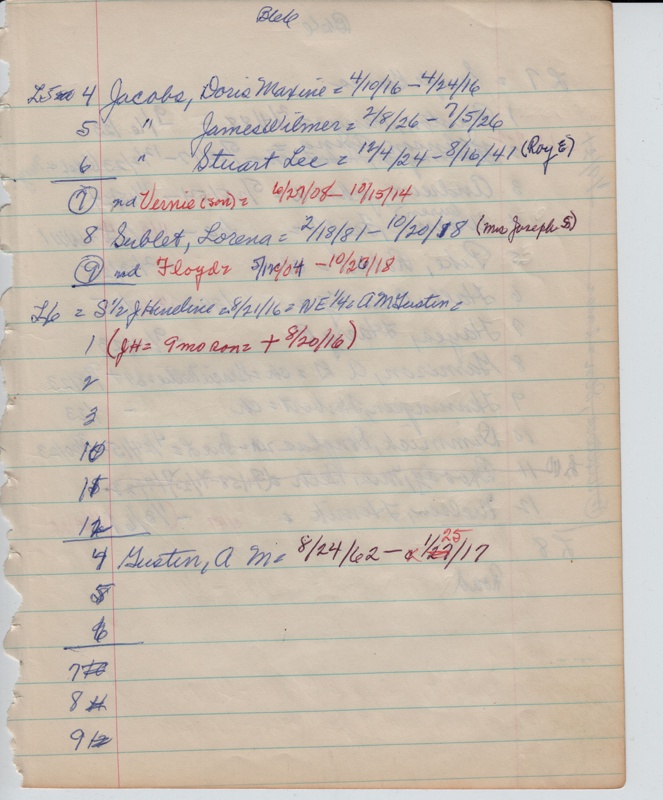 Blk 6
L5 4 Jacobs, Doris Maxine = 4/10/16 - 4/24/16
5 " James Wilmer = 2/8/26 - 7/5/26
6 " Stuart Lee = 12/4/24 - 8/16/41 (Roy E)
7 nd Vernie (son) = 6/27/08 - 10/15/14
8 Sublet, Lorena = 2/18/81 - 10/20/18 (Mrs Joseph S)
9 nd Floyd = - 10/23/18
L6 = S 1/2 J Hineline = 8/21/16 = NE 1/4 = A M Gustin =
1 (JH = 9 mo son = + 8/20/16)
2
3
10
11
12
4 Gustin, A M = 8/24/62 - 1/25/17
5
6
7
8
9